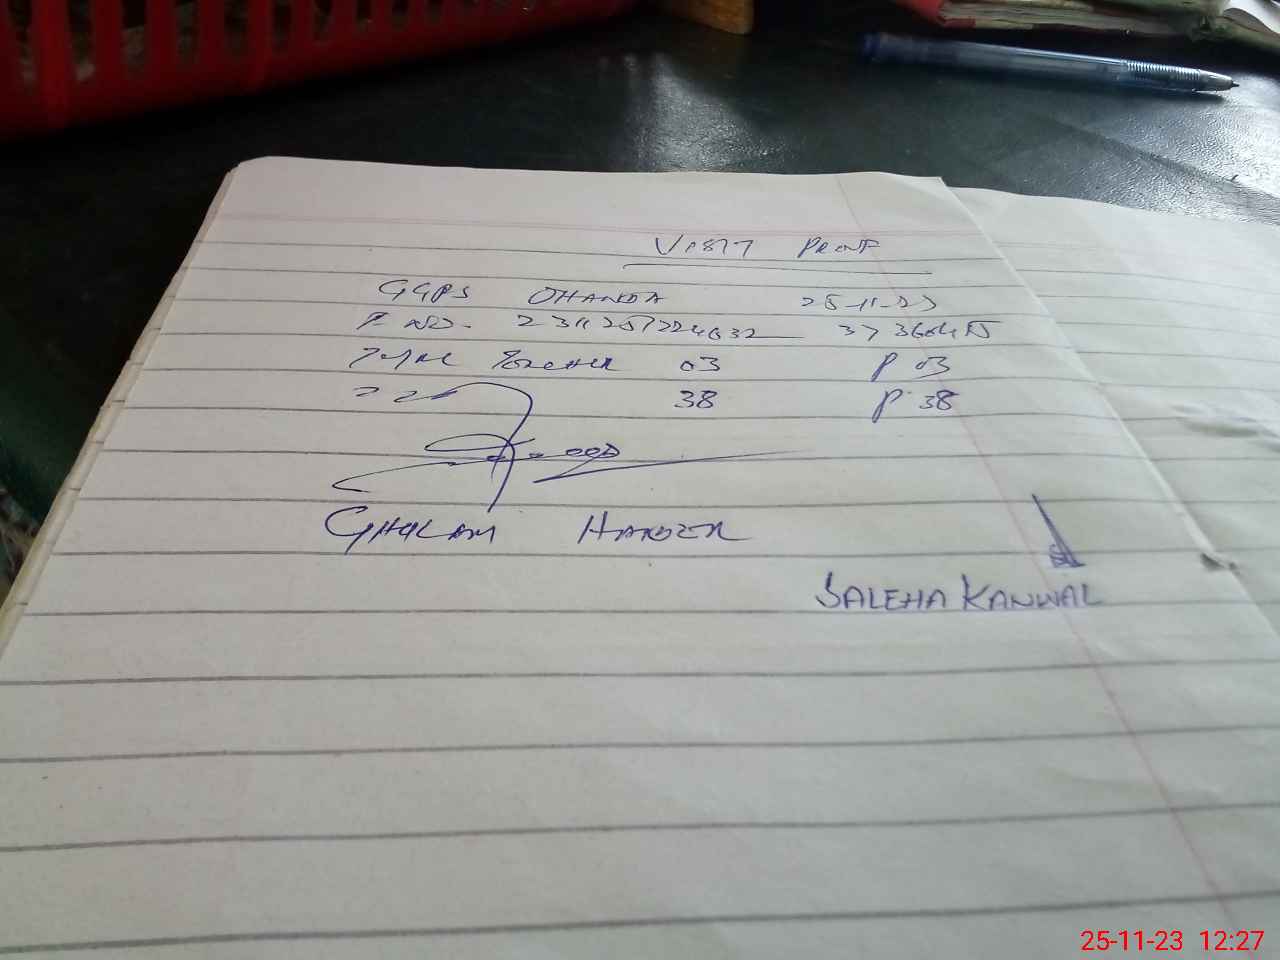 VISIT PROOF
GGPS DHANDA 25-11-23
F NO. 37360415
Total Teacher 03 P 03
38 P 38
GHULAM HAIDER
SALEHA KANWAL
25-11-23 12:27